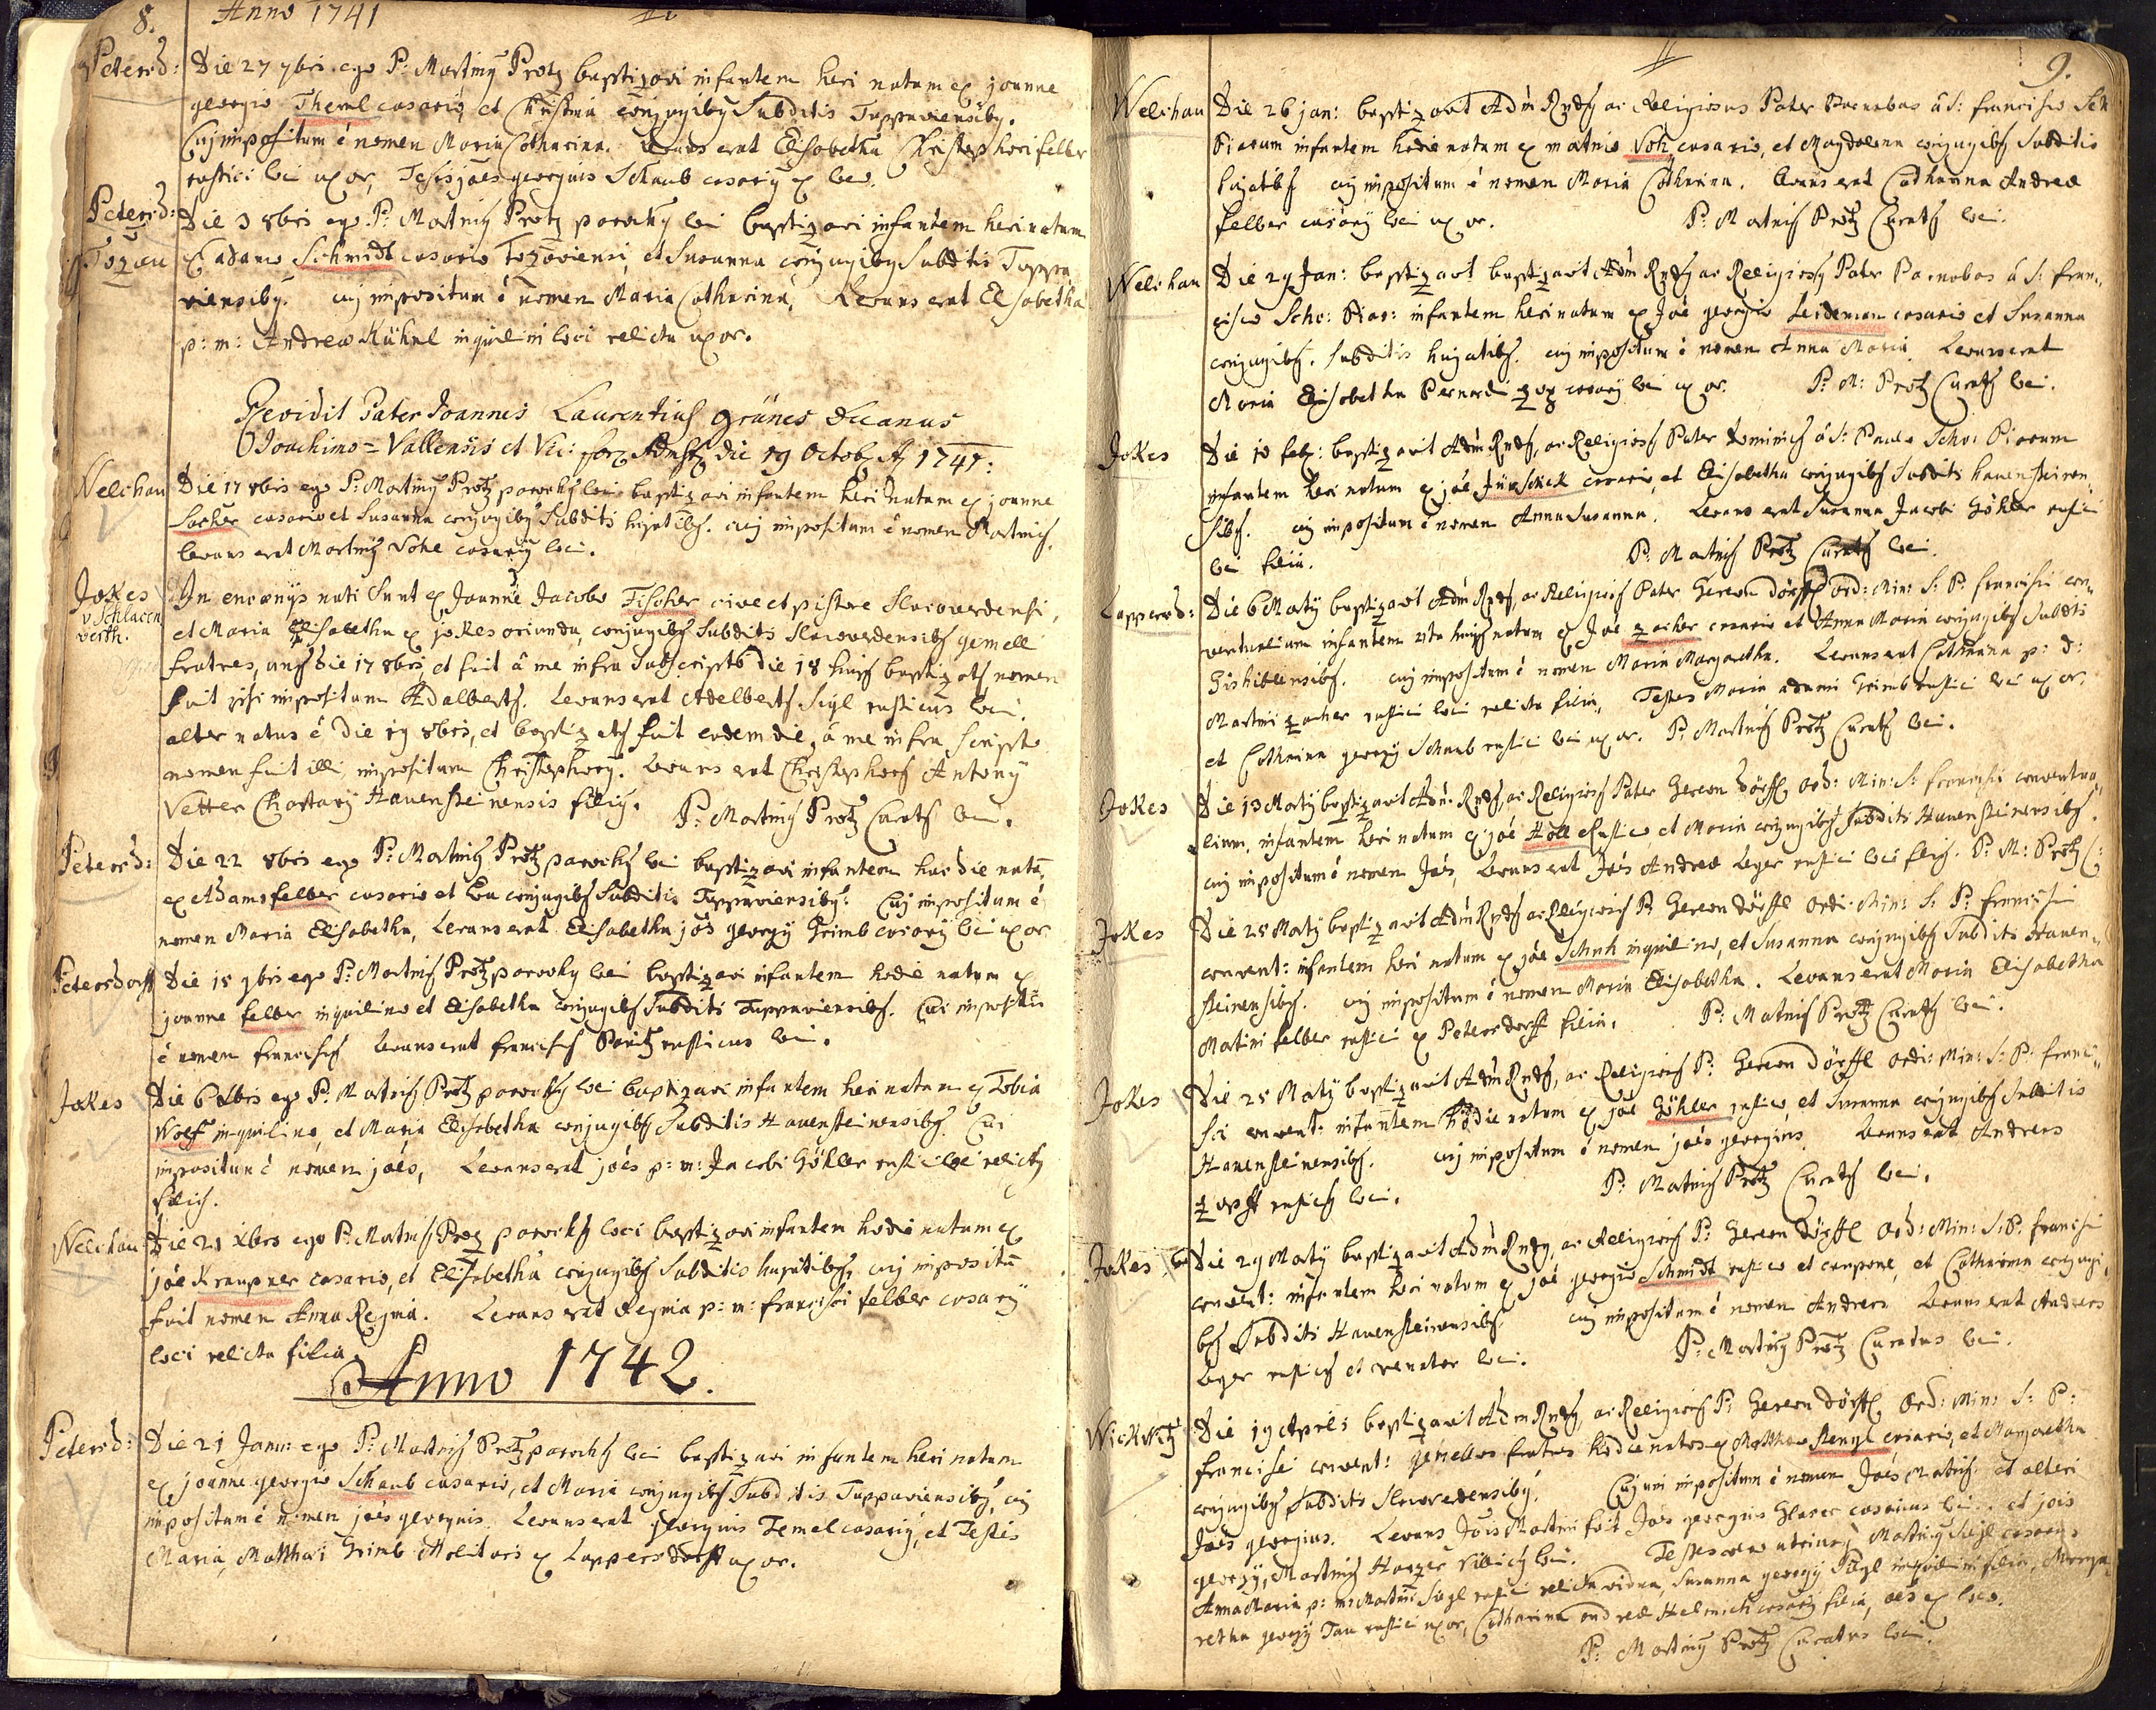 8. Anno 1741
Petersd: Die 27 7bris ego P: Martinꝰ Protz baptizavi infantem heri natum ex joanne
georgio Theml casario, et Christina conjugibꝰ Subditis Tuppaviensibꝰ.
Cuj impositum é nomen Maria Catharina. Levans erat Elisabetha Christophori felber
rustici loci uxor, Testis joaes georgius Schaub casariꝰ ex loco.
Petersd: Die 3 8bris ego P: Martinꝰ Protz parochꝰ loci baptizavi infantem heri natum
Tozau Ex adamo Schmidt casario Tozoviensi, et Susanna conjugibꝰ Subditis Tuppa
viensibꝰ. cuj impositum é nomen Maria Catharina. Levans erat Elisabetha
p: m: Andreae Kühnl inquilini loci relicta uxor.
Revidit Pater Joannes Laurentius Grünes Decanus
Joachimo=Vallensis et Vic: for: die 19 Octob: A 1741:
Welchau Die 17 8bris ego P: Martinꝰ Protz parochꝰ loci baptizavi infantem heri natum ex joanne
Sacher casario et Susanna conjugibꝰ Subditis hujatibꝰ. cuj impositum é nomen Martinꝰ.
levans erat Martinꝰ Sohe casariꝰ loci.
Jokes In encaenijs nati Sunt ex Joanne Jacobo Fischer cive et pistore Slacoverdensi,
v Schlacen
werth. et Maria Elisabetha ex jokes oriunda, conjugibꝰ Subditis Slacoverdensibꝰ gemelli
fratres, unꝰ die 17 8bris, et fuit á me infra Subscripto die 18 hujꝰ baptizatꝰ nomen
fuit ipsi impositum Adalbertꝰ. Levans erat Adelbertꝰ Sigl rusticus loci.
alter natus é Die 19 8bris, et baptizatꝰ fuit eodem die, á me infra scripto
nomen fuit illi impositum Christophorꝰ. levans erat Christophorꝰ Antonij
Vetter Chartarij Hauensteinensis filiꝰ. P: Martinꝰ Protz Curatꝰ loci.
Petersd: Die 22 8bris ego P: Martinꝰ Protz parochꝰ loci baptizavi infantem hac die natū
ex Adamo felber casario et Eva conjugibꝰ Subditis Tuppaviensibꝰ. Cuj impositum é
nomen Maria Elisabetha, Levans erat Elisabetha joās georgij Grimb casarij loci uxor
Petersdorff Die 15 9bris ego P: Martinꝰ Protz parochꝰ loci baptizavi infantem hodie natum ex
joanne felber inquilino et Elisabetha conjugibꝰ Subditis Tuppaviensibꝰ. Cui impositū
é nomen franciscꝰ levans erat franciscꝰ Paritz rusticus loci.
Jokes Die 6 Xbris ego P: Martinꝰ Protz parochꝰ loci baptizavi infantem heri natum ex Tobia
Wolf inquilino, et Maria Elisabetha conjugibꝰ Subditis Hauensteinensibꝰ. Cui
impositum é nomen joaēs, Levans erat joaēs p: m: Jacobi Göhler rustici loci relictꝰ
filiꝰ.
Welchau Die 21 Xbris ego P: Martinꝰ Protz parochꝰ loci baptizavi infantem hodie natum ex
joāe Kraupner casario, et Elisabetha conjugibꝰ Subditis hujatibꝰ, cuj impositū
fuit nomen Anna Regina. Levans erat Regina p: m: francisci felber casarij
loci relicta filia.
Anno 1742.
Petersd: Die 21 Janu: ego P: Martinꝰ Protz parochꝰ loci baptizavi infantem heri natum
ex joanne georgio Schaub casario, et Maria conjugibꝰ Subditis Tuppaviensibꝰ, cuj
impositum é nomen joaēs georgius. Levans erat georgius Temel casariꝰ, et Testis
Maria, Matthaei Grimb Molitoris ex Lappersdorff uxor.
9.
Welchau Die 26 jan: baptizavit Adm Rndꝰ ac Religiosus Pater Barnabas á S: francisco Sch
Piarum infantem hodie natum ex martino Soh casario, et Magdalena conjugibꝰ Subditis
hujatibꝰ cuj impositum é nomen Maria Catharina. levans erat Catharina Andreae
felber casarij loci uxor. P: Martinꝰ Protz Curatꝰ loci.
Welchau Die 29 Jan: baptizavit baptizavit Adm Rndꝰ ac Religiosꝰ Pater Barnabas á S: fran=
cisco Scho: Piar: infantem heri natum ex Joāe georgio Leideman casario et Susanna
conjugibꝰ. Subditis hujatibꝰ. cuj impositum é nomen Anna Maria. Levans erat
Maria Elisabetha Bernardi casarij loci uxor. P: M: Protz Curatꝰ loci.
Jokes Die 10 feb: baptizavit Adm Rndꝰ, ac Religiosꝰ Pater Dominicꝰ á S: Paulo Scho: Piarum
infantem heri natum ex joāe Jurschick casario, et Elisabetha conjugibꝰ Subditis hauensteinen=
sibꝰ. cuj impositum é nomen Anna Susanna. Levans erat Susanna Jacobi Göhler rustici
loci filia. P: Martinꝰ Protz Curatꝰ loci.
Lappersd: Die 6 Martij baptizavit Adm Rndꝰ, ac Religiosꝰ Pater Gereon Dörffl ord: Min: S: P: francisci con=
ventualium infantem 4ta hujꝰ natum ex Joāe Zacher casario et Anna Maria conjugibꝰ Subditis
Gishiblensibꝰ. cuj impositum é nomen Maria Margaretha. Levans erat Catharina p: d:
Martini Zacher rustici loci relicta filia, Testes Maria adami Grimb rustici loci uxor.
et Catharina georgij Schaub rustici loci uxor. P: Martinꝰ Protz Curatꝰ loci.
Jokes Die 13 Martij baptizavit Adm. Rndꝰ, ac Religiosꝰ Pater Gereon Dörffl, Ord: Min: S: francisci conventua=
lium, infantem heri natum ex joāe Höll rustico, et Maria conjugibꝰ Subditis Hauensteinensibꝰ.
cuj impositum é nomen Joāēs, levans erat Joāēs Andreae Leger rustici loci filiꝰ. P: M: Protz C:
Jokes Die 25 Martij baptizavit Adm Rndꝰ ac Religiosꝰ P: Gereon Dörffl Ordi: Min: S: P: francisci
convent: infantem heri natum ex joāe Schuh inquilino, et Susanna conjugibꝰ Subditis Hauen=
steinensibꝰ. cuj impositum é nomen Maria Elisabetha. Levans erat Maria Elisabetha
Martini felber rustici ex Petersdorff filia. P: Martinꝰ Protz Curatꝰ loci.
Jokes Die 25 Martij baptizavit Adm Rndꝰ, ac Religiosꝰ P: Gereon Dörffl Ordi: Min: S: P: franci=
sci convent: infantem hodie natum ex joāe Göhler rustico, et Susanna conjugibꝰ Subditis
Hauensteinensibꝰ. cuj impositum é nomen joāēs georgius. levans erat Andreas
Zapff rusticꝰ loci. P: Martinꝰ Protz Curatꝰ loci.
Jokes Die 29 Martij baptizavit Adm Rndꝰ, ac Religiosꝰ P: Gereon Dörffl Ord: Min: S: P: francisci
convent: infantem heri natum ex joāe georgio Schmidt rustico et caupone, et Catharina conjugi=
bꝰ Subditis Hauensteinensibꝰ. cuj impositum é nomen Andreas levans erat Andreas
Leger rusticꝰ et venator loci. P: Martinꝰ Protz Curatus loci.
Wickwitz Die 19 Aprilis baptizavit Adm Rndꝰ ac Religiosꝰ P: Gereon Dörffl Ord: Min: S: P:
francisci convent: gemellos fratres hodie natos ex Matthaeo Stengl casario, et Margaretha
conjugibꝰ Subditis Slacoverdensibꝰ. Cuj uni impositum é nomen Joāēs Martinꝰ et alteri
Joāēs georgius. Levans Joāis Martini fuit Joāēs georgius Glaser casarius loci. et joāis
georgij, Martinꝰ Harzer loci. Testes vero utriusque Martinꝰ Sigl casarius
Anna Maria p: m: Martini Sigl rustici relicta vidua, Susanna georgij Sigl inquilini filia, Marga=
retha georgij Tau rustici uxor, Catharina andreae Helmich casarij filia, oēs ex loco.
P: Martinꝰ Protz Curatus loci.